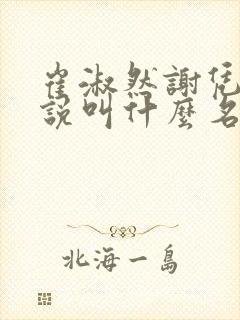 崔淑然謝
說叫什麼名
北海一島